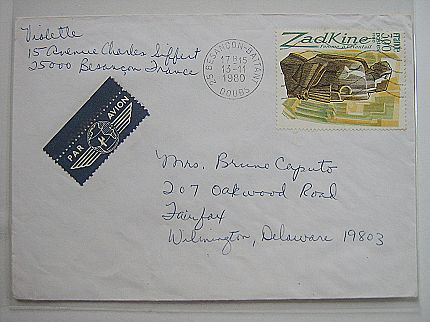 Violette
15 Avenue Charles Siffert
25000 Besançon France
25 BESANÇON-BATTANT
17H15
13-11
1980
DOUBS
ZadKine
3,00
PAR AVION
Mrs. Bruno Caputo
207 Oakwood Road
Fairfax
Wilmington, Delaware 19803